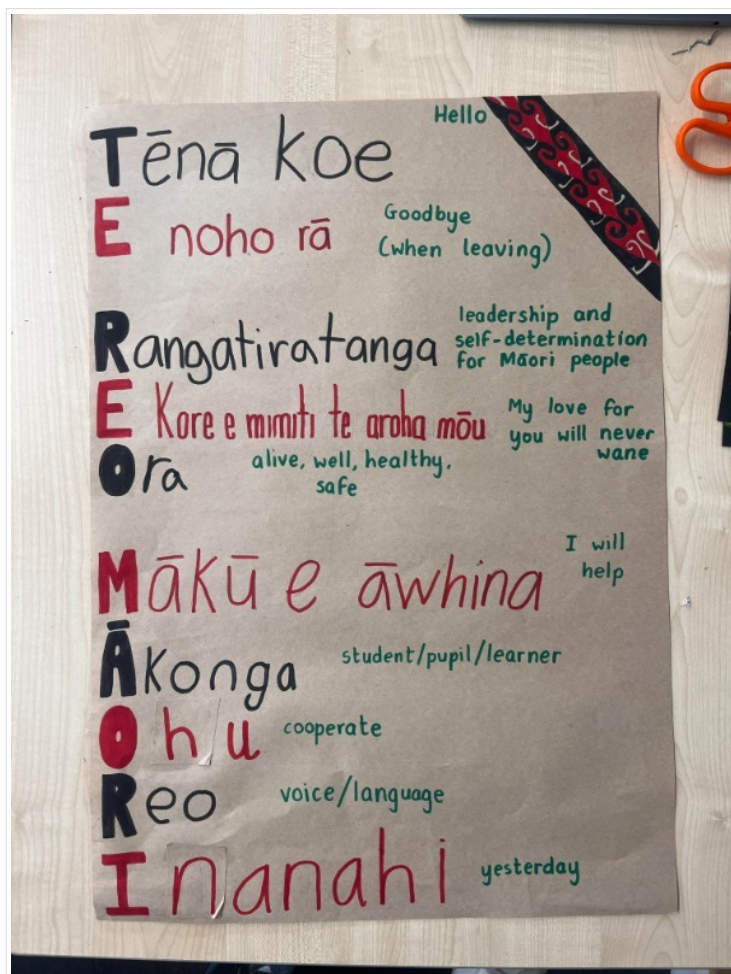 Tēnā koe
Hello
E noho rā
Goodbye
(when leaving)
Rangatiratanga
leadership and
self-determination
for Māori people
E Kore e mimiti te aroha mōu
My love for
you will never
wane
Ora
alive, well, healthy,
safe
Mākū e āwhina
I will
help
Ākonga
student/pupil/learner
Ohu
cooperate
Reo
voice/language
Inanahi
yesterday